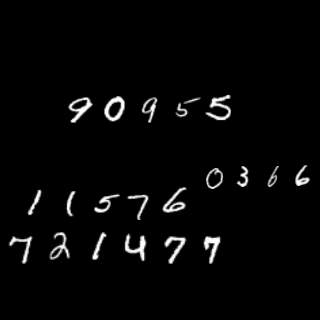 90955
0366
11576
721477